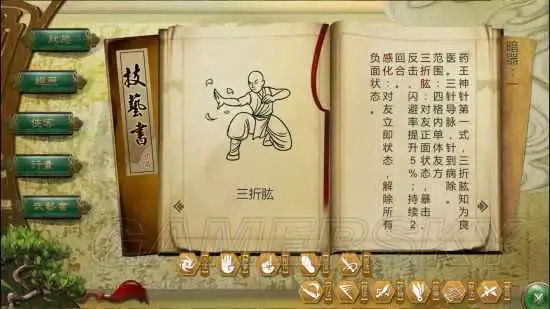 技藝書
三折肱
药王神针第一式，三折肱知为良
医。三针导脉，针到病除。
范围：四格内单体友方
三折肱：对友正面状态，暴击、
反击、闪避率提升5%；持续2
回合。
感化：对友立即状态，解除所有
负面状态。
GAMERSKY